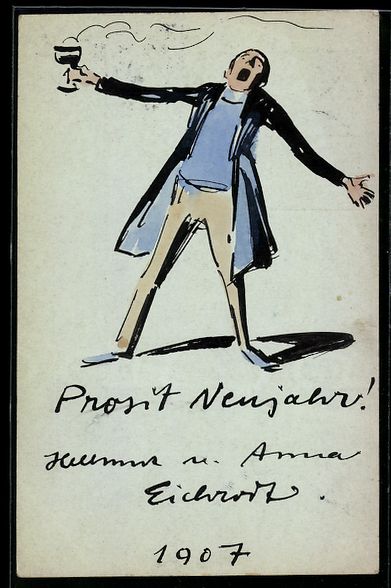 Prosit Neujahr!
Hellmut u. Anna
Eichrodt.
1907